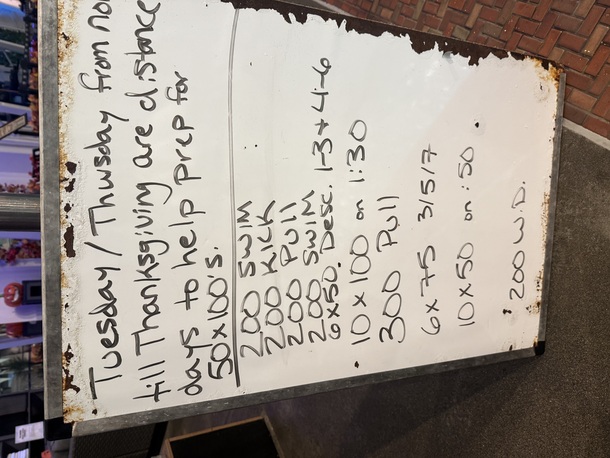 Tuesday / Thursday from now
till Thanksgiving are distance
days to help prep for
50x100's.
200 SWIM
200 KICK
200 PULL
200 SWIM
6x50 Desc. 1-3 + 4-6
10 x 100 on 1:30
300 Pull
6 x 75 3/5/7
10 x 50 on :50
200 W.D.